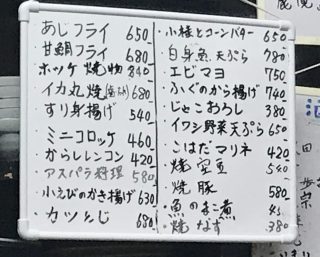 あじフライ 650
甘鯛フライ 680
ホッケ焼物 840
イカ丸焼 680
すり身揚げ 540
・ミニコロッケ 460
・からしレンコン 420
・アスパラ料理 580
・小えびのかき揚げ 630
・カツとじ 680
・小柱とコーンバター 650
・白身魚天ぷら 780
・エビマヨ 750
・ふぐのから揚げ 740
・じゃこおろし 380
・イワシ野菜天ぷら 650
・こはだマリネ 420
・焼空豆 540
・焼豚 580
・魚のまこ煮
・焼なす 380